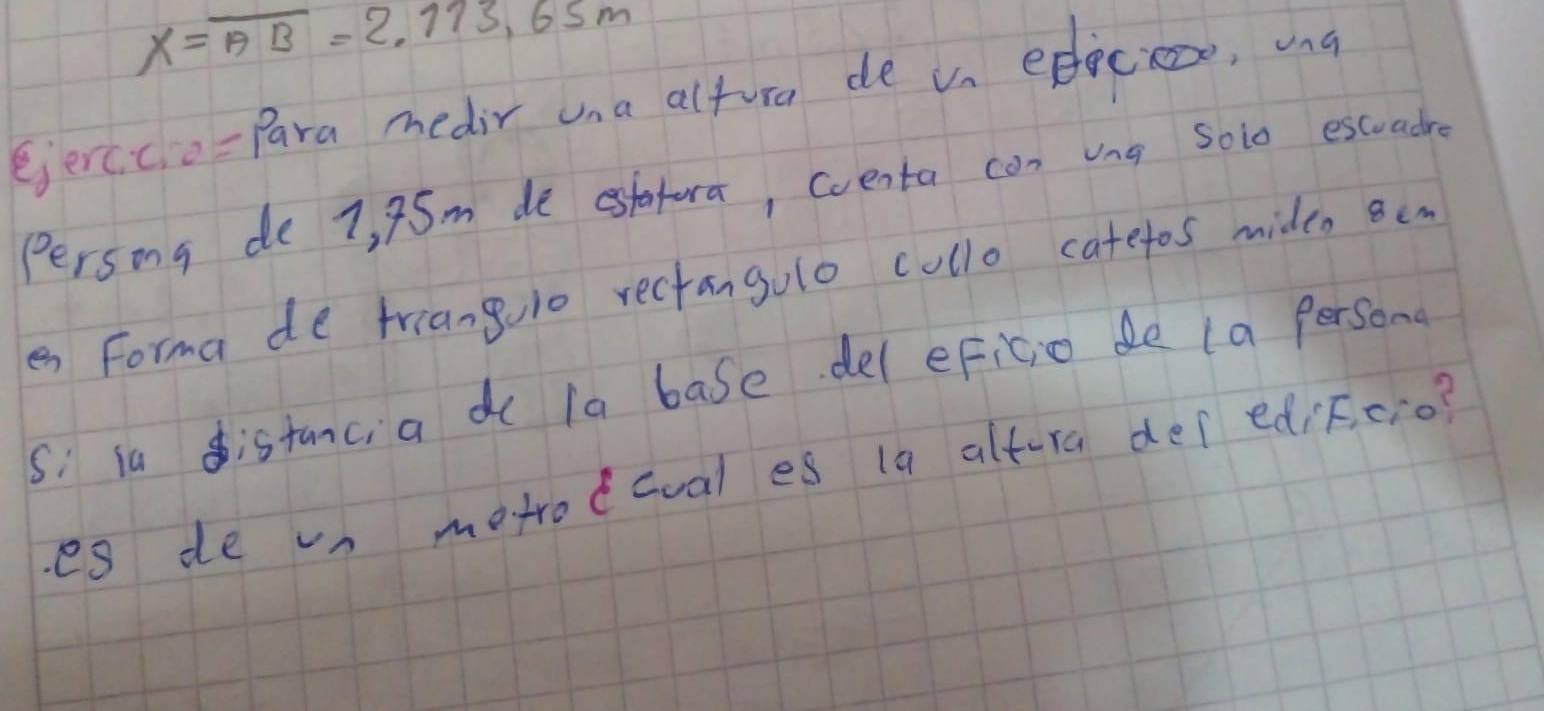 X = AB = 2.113,65m
Ejercicio = Para medir una altura de un edificio, una
Persona de 1,75m de estatura, cuenta con una solo escuadre
en Forma de triangulo rectangulo cullo catetos miden 8cm
Si la distancia de la base del eficio de la Persona
es de un metro ¿ cual es la altura del edificio?